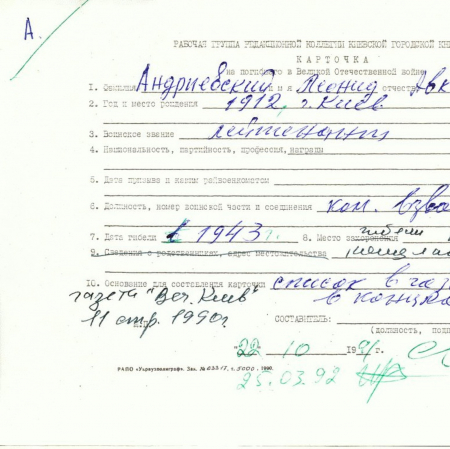 А.
РАБОЧАЯ ГРУППА РЕДАКЦИОННОЙ КОЛЛЕГИИ КИЕВСКОЙ ГОРОДСКОЙ КНИ
КАРТОЧКА
на погибшего в Великой Отечественной войне
1. Фамилия Андриевский имя Леонид отчество Авк
2. Год и место рождения 1912, г. Киев
3. Воинское звание лейтенант
4. Национальность, партийность, профессия, награды
5. Дата призыва и каким райвоенкоматом
6. Должность, номер воинской части и соединения ком. взво
7. Дата гибели 1943 г. 8. Место захоронения гибели
9. Сведения о родственниках, адрес местожительства
10. Основание для составления карточки список
газета "Веч. Киев"
11 стр. 1990г.
СОСТАВИТЕЛЬ:
(должность, подп
"22" 10 1991г.
РАПО «Укрвузполиграф». Зак. № 03317, т. 5000. 1990.
25.03.92